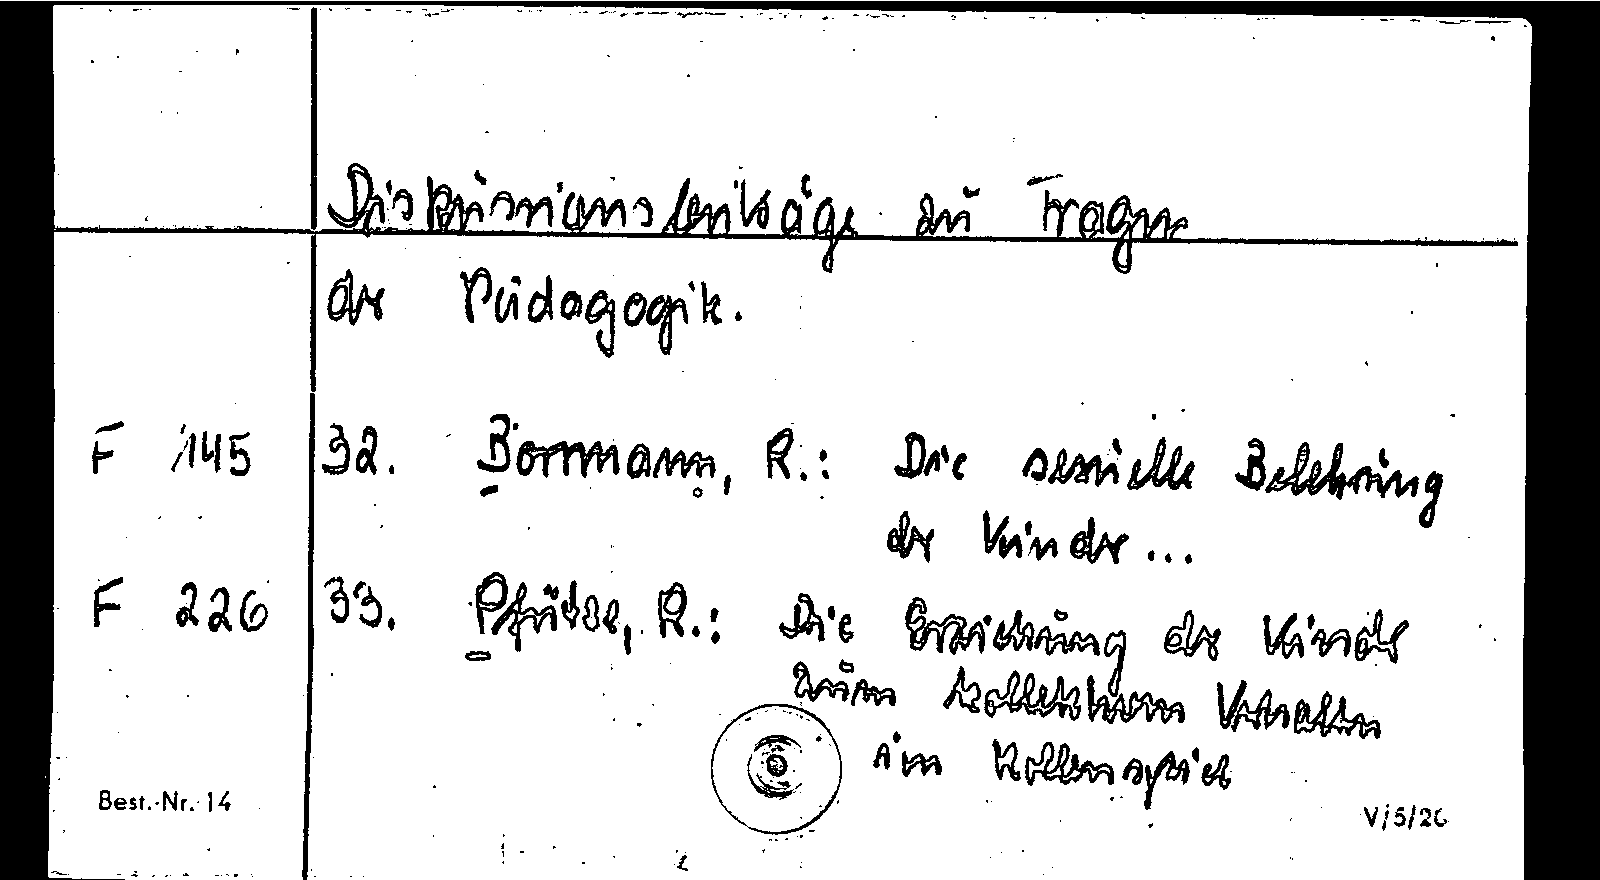 Diskussionsbeiträge zu Fragen
der Pädagogik.
F 145 32. Borrmann, R.: Die sexuelle Belehrung
der Kinder...
F 226 33. Pfütze, R.: Die Erziehung der Kinder
zum kollektiven Verhalten
im Rollenspiel
Best.-Nr. 14 V/5/26